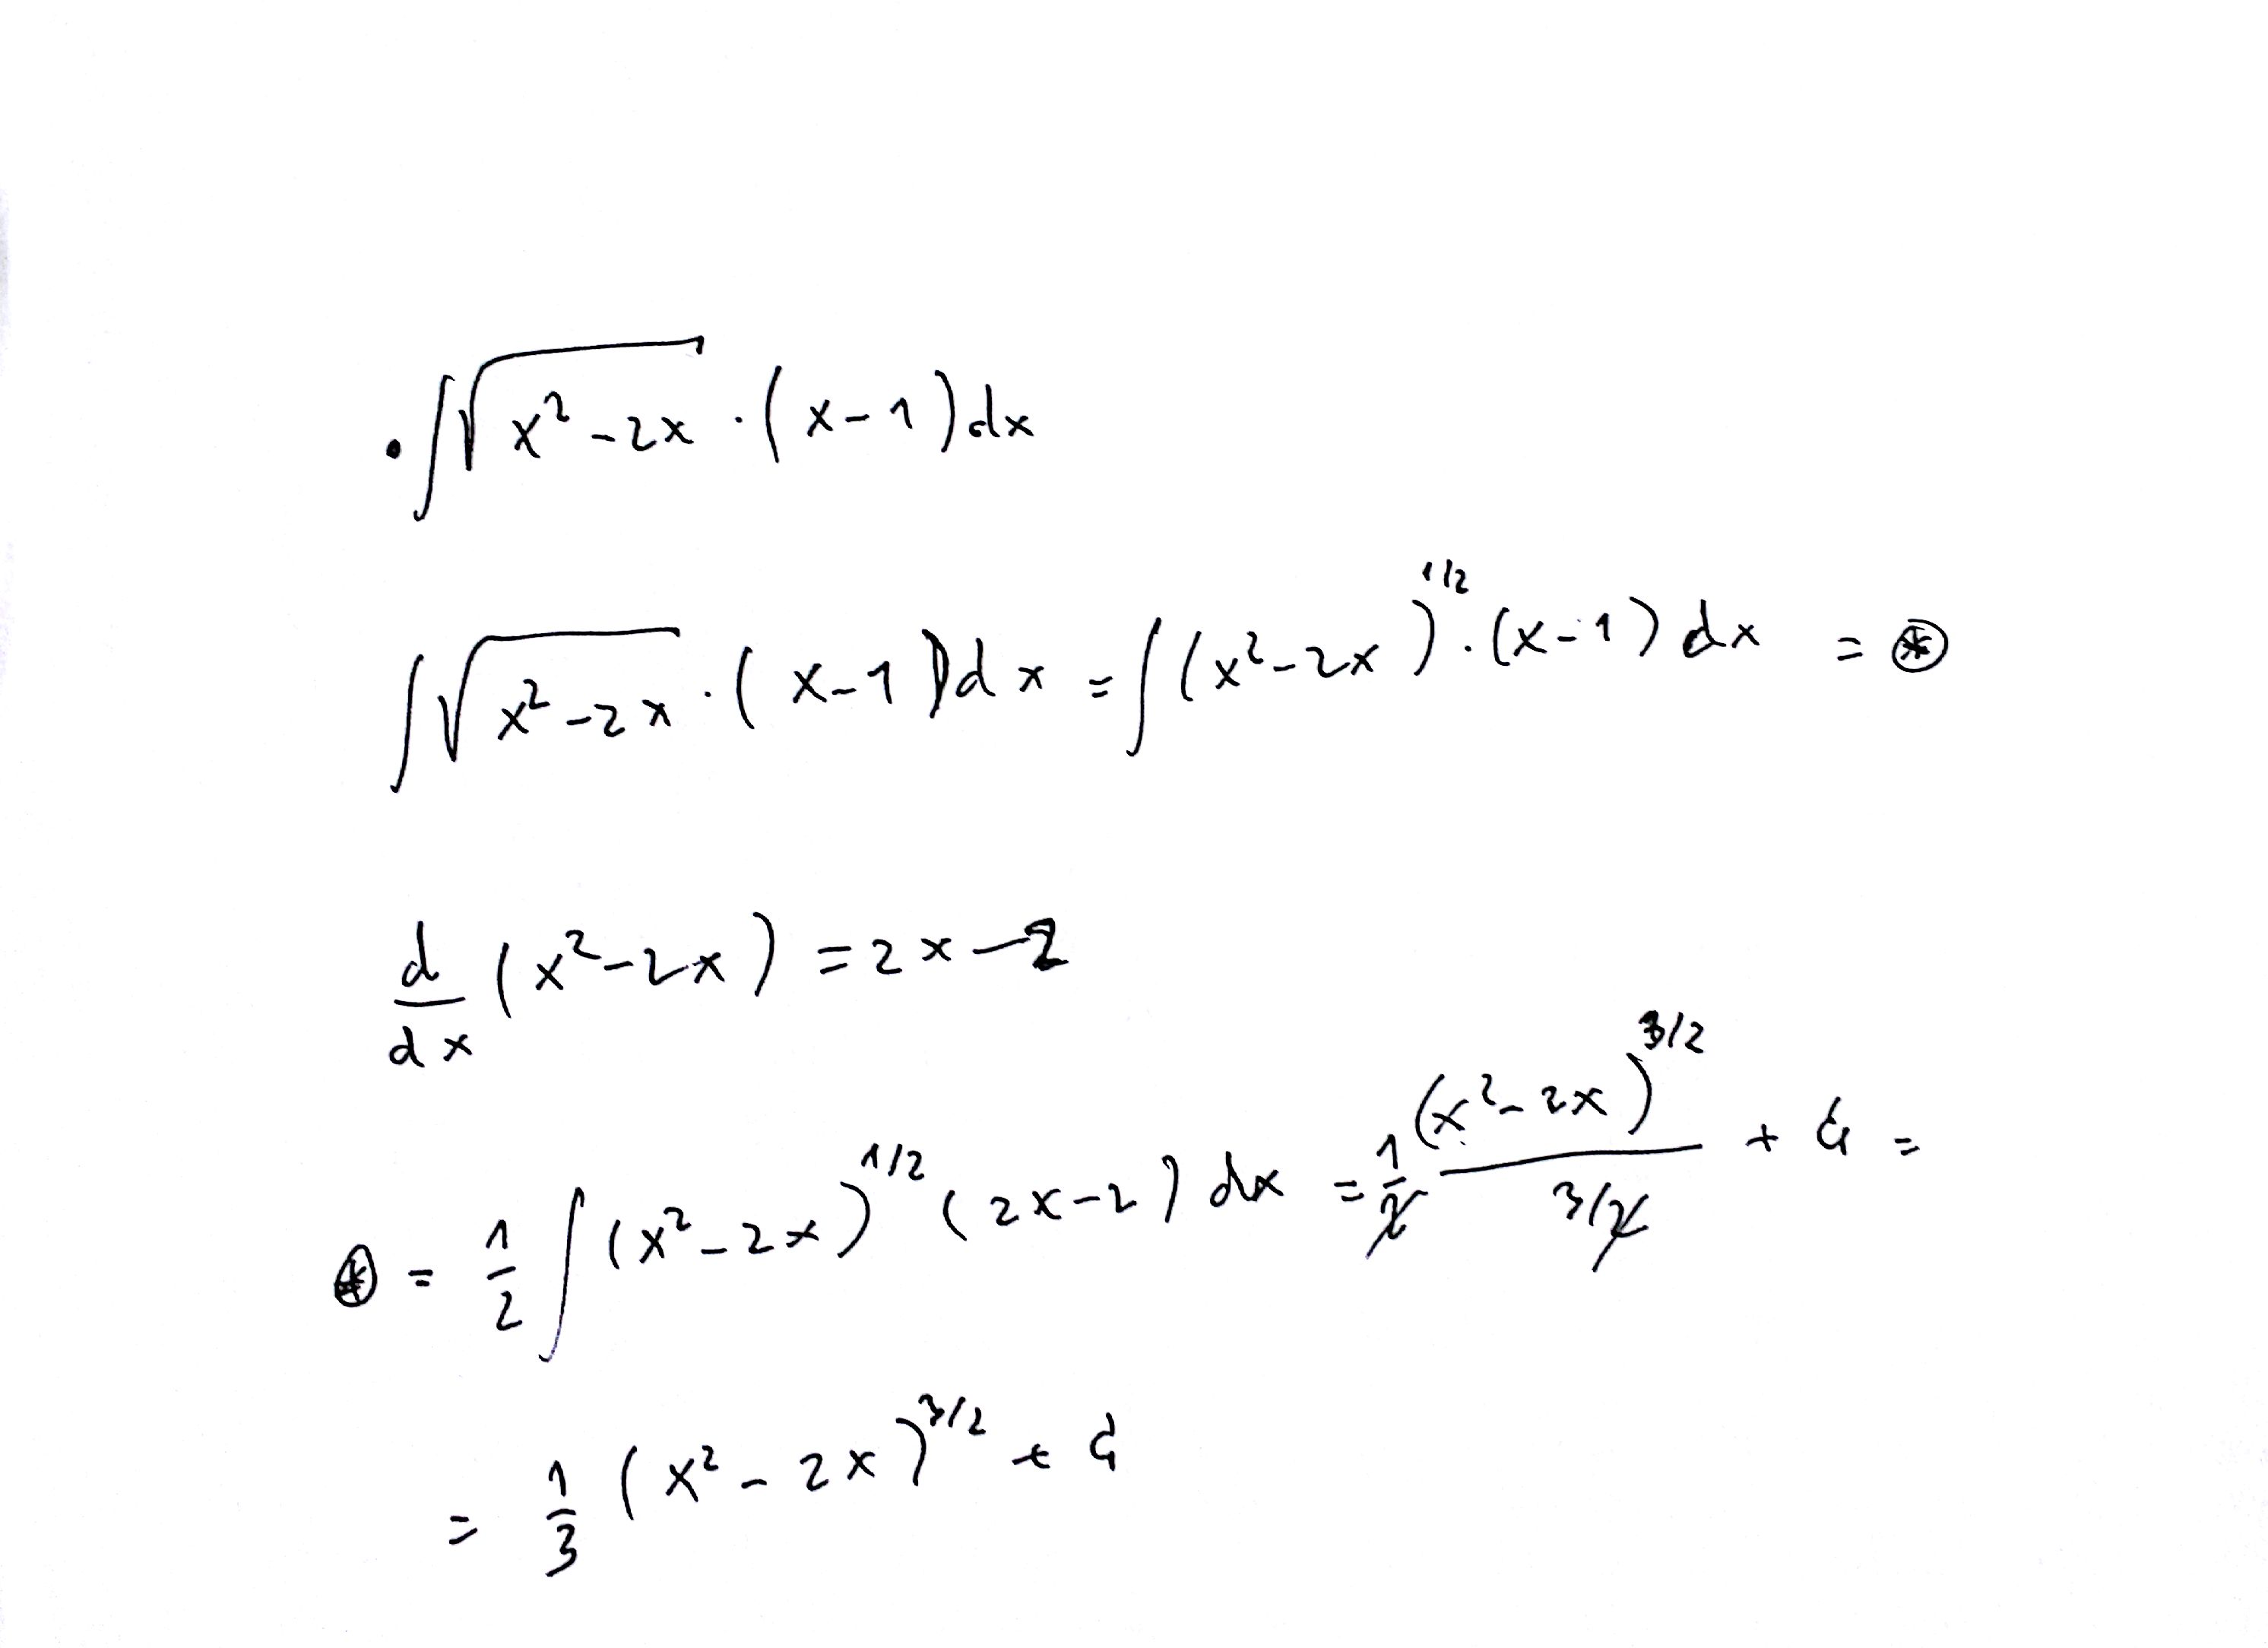 • ∫√(x² - 2x) · (x - 1) dx
∫√(x² - 2x) · (x - 1) dx = ∫(x² - 2x)^(1/2) · (x - 1) dx = ⊛
d/dx (x² - 2x) = 2x - 2
⊛ = 1/2 ∫(x² - 2x)^(1/2) (2x - 2) dx = 1/2 (x² - 2x)^(3/2) / (3/2) + C =
= 1/3 (x² - 2x)^(3/2) + C